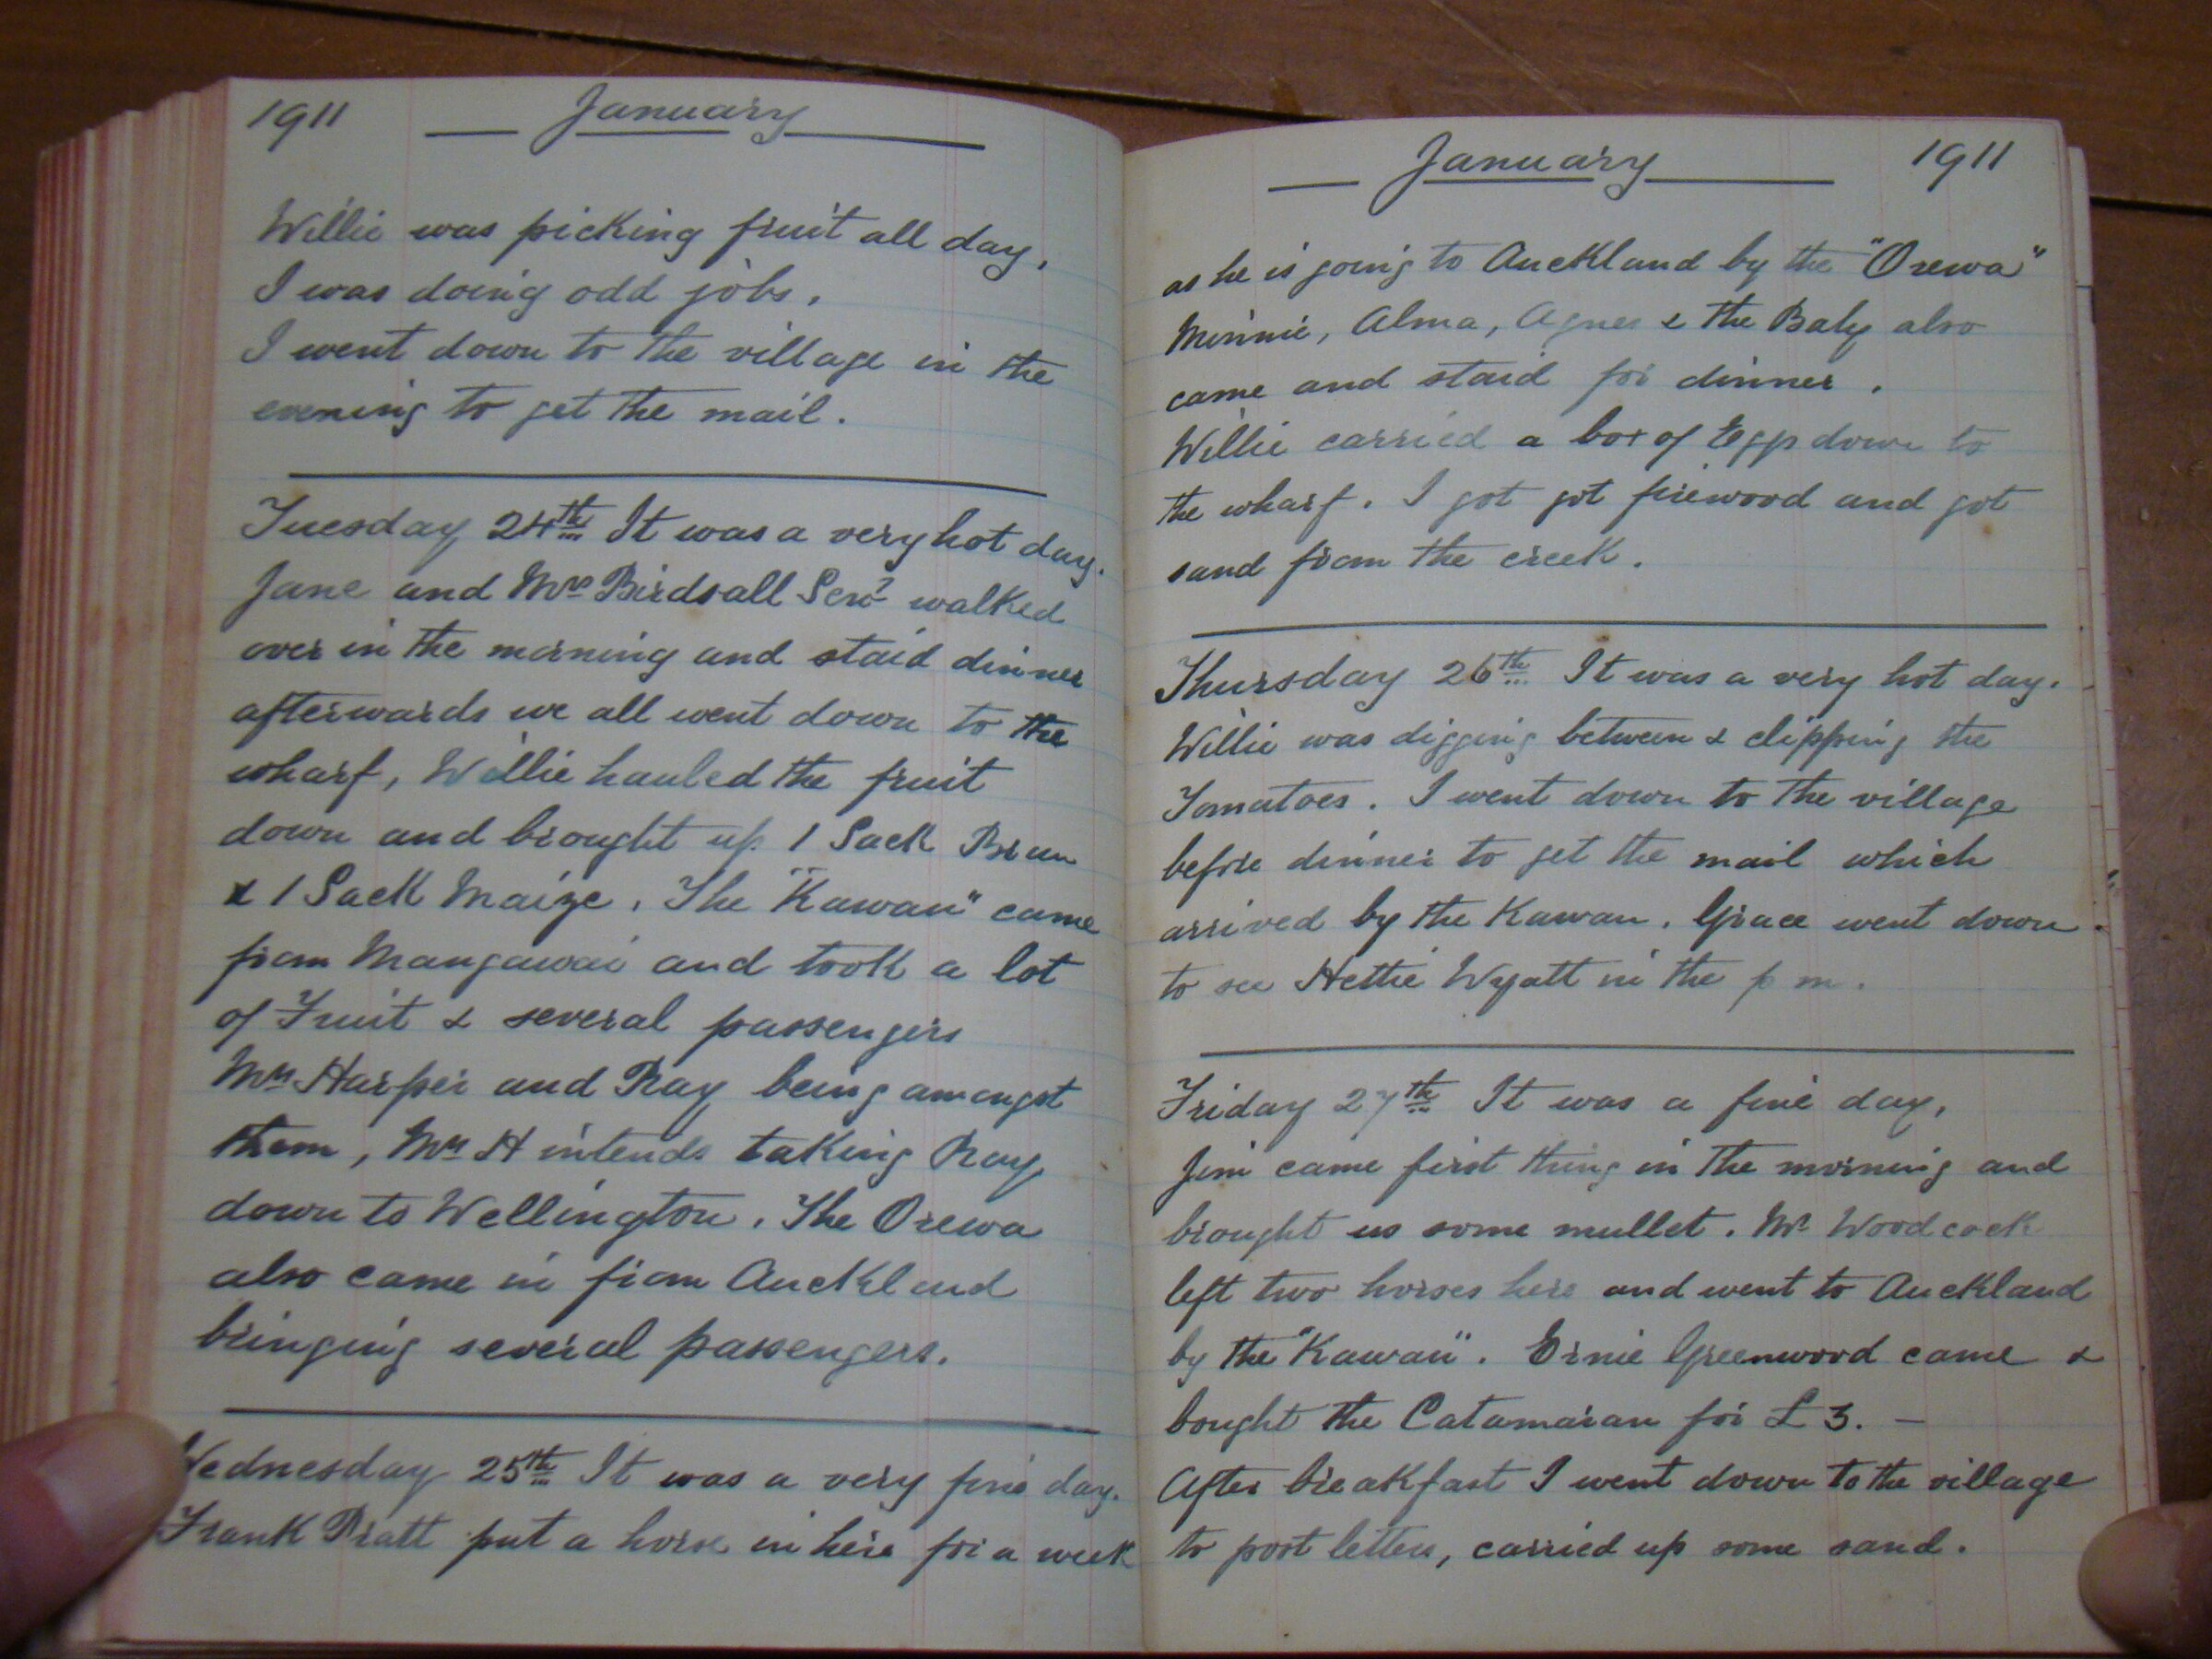 1911 January
Willie was picking fruit all day,
I was doing odd jobs,
I went down to the village in the
evening to get the mail.
Tuesday 24th It was a very hot day.
Jane and Mrs Birdsall Senr walked
over in the morning and staid dinner
afterwards we all went down to the
wharf, Willie hauled the fruit
down and brought up 1 Sack Bran
& 1 Sack Maize. The "Kawau" came
from Mangawai and took a lot
of Fruit & several passengers
Mrs Harper and Ray being amongst
them, Mrs H intends taking Ray
down to Wellington. The Orewa
also came in from Auckland
bringing several passengers.
Wednesday 25th It was a very fine day.
Frank Pratt put a horse in here for a week
January 1911
as he is going to Auckland by the "Orewa"
Minnie, Alma, Agnes & the Baby also
came and staid for dinner.
Willie carried a box of Eggs down to
the wharf. I got got firewood and got
sand from the creek.
Thursday 26th It was a very hot day.
Willie was digging between & clipping the
Tomatoes. I went down to the village
before dinner to get the mail which
arrived by the Kawau. Grace went down
to see Hettie Wyatt in the p m.
Friday 27th It was a fine day,
Jim came first thing in the morning and
brought us some mullet. Mr Woodcock
left two horses here and went to Auckland
by the "Kawau". Ernie Greenwood came &
bought the Catamaran for £3. —
After breakfast I went down to the village
to post letters, carried up some sand.